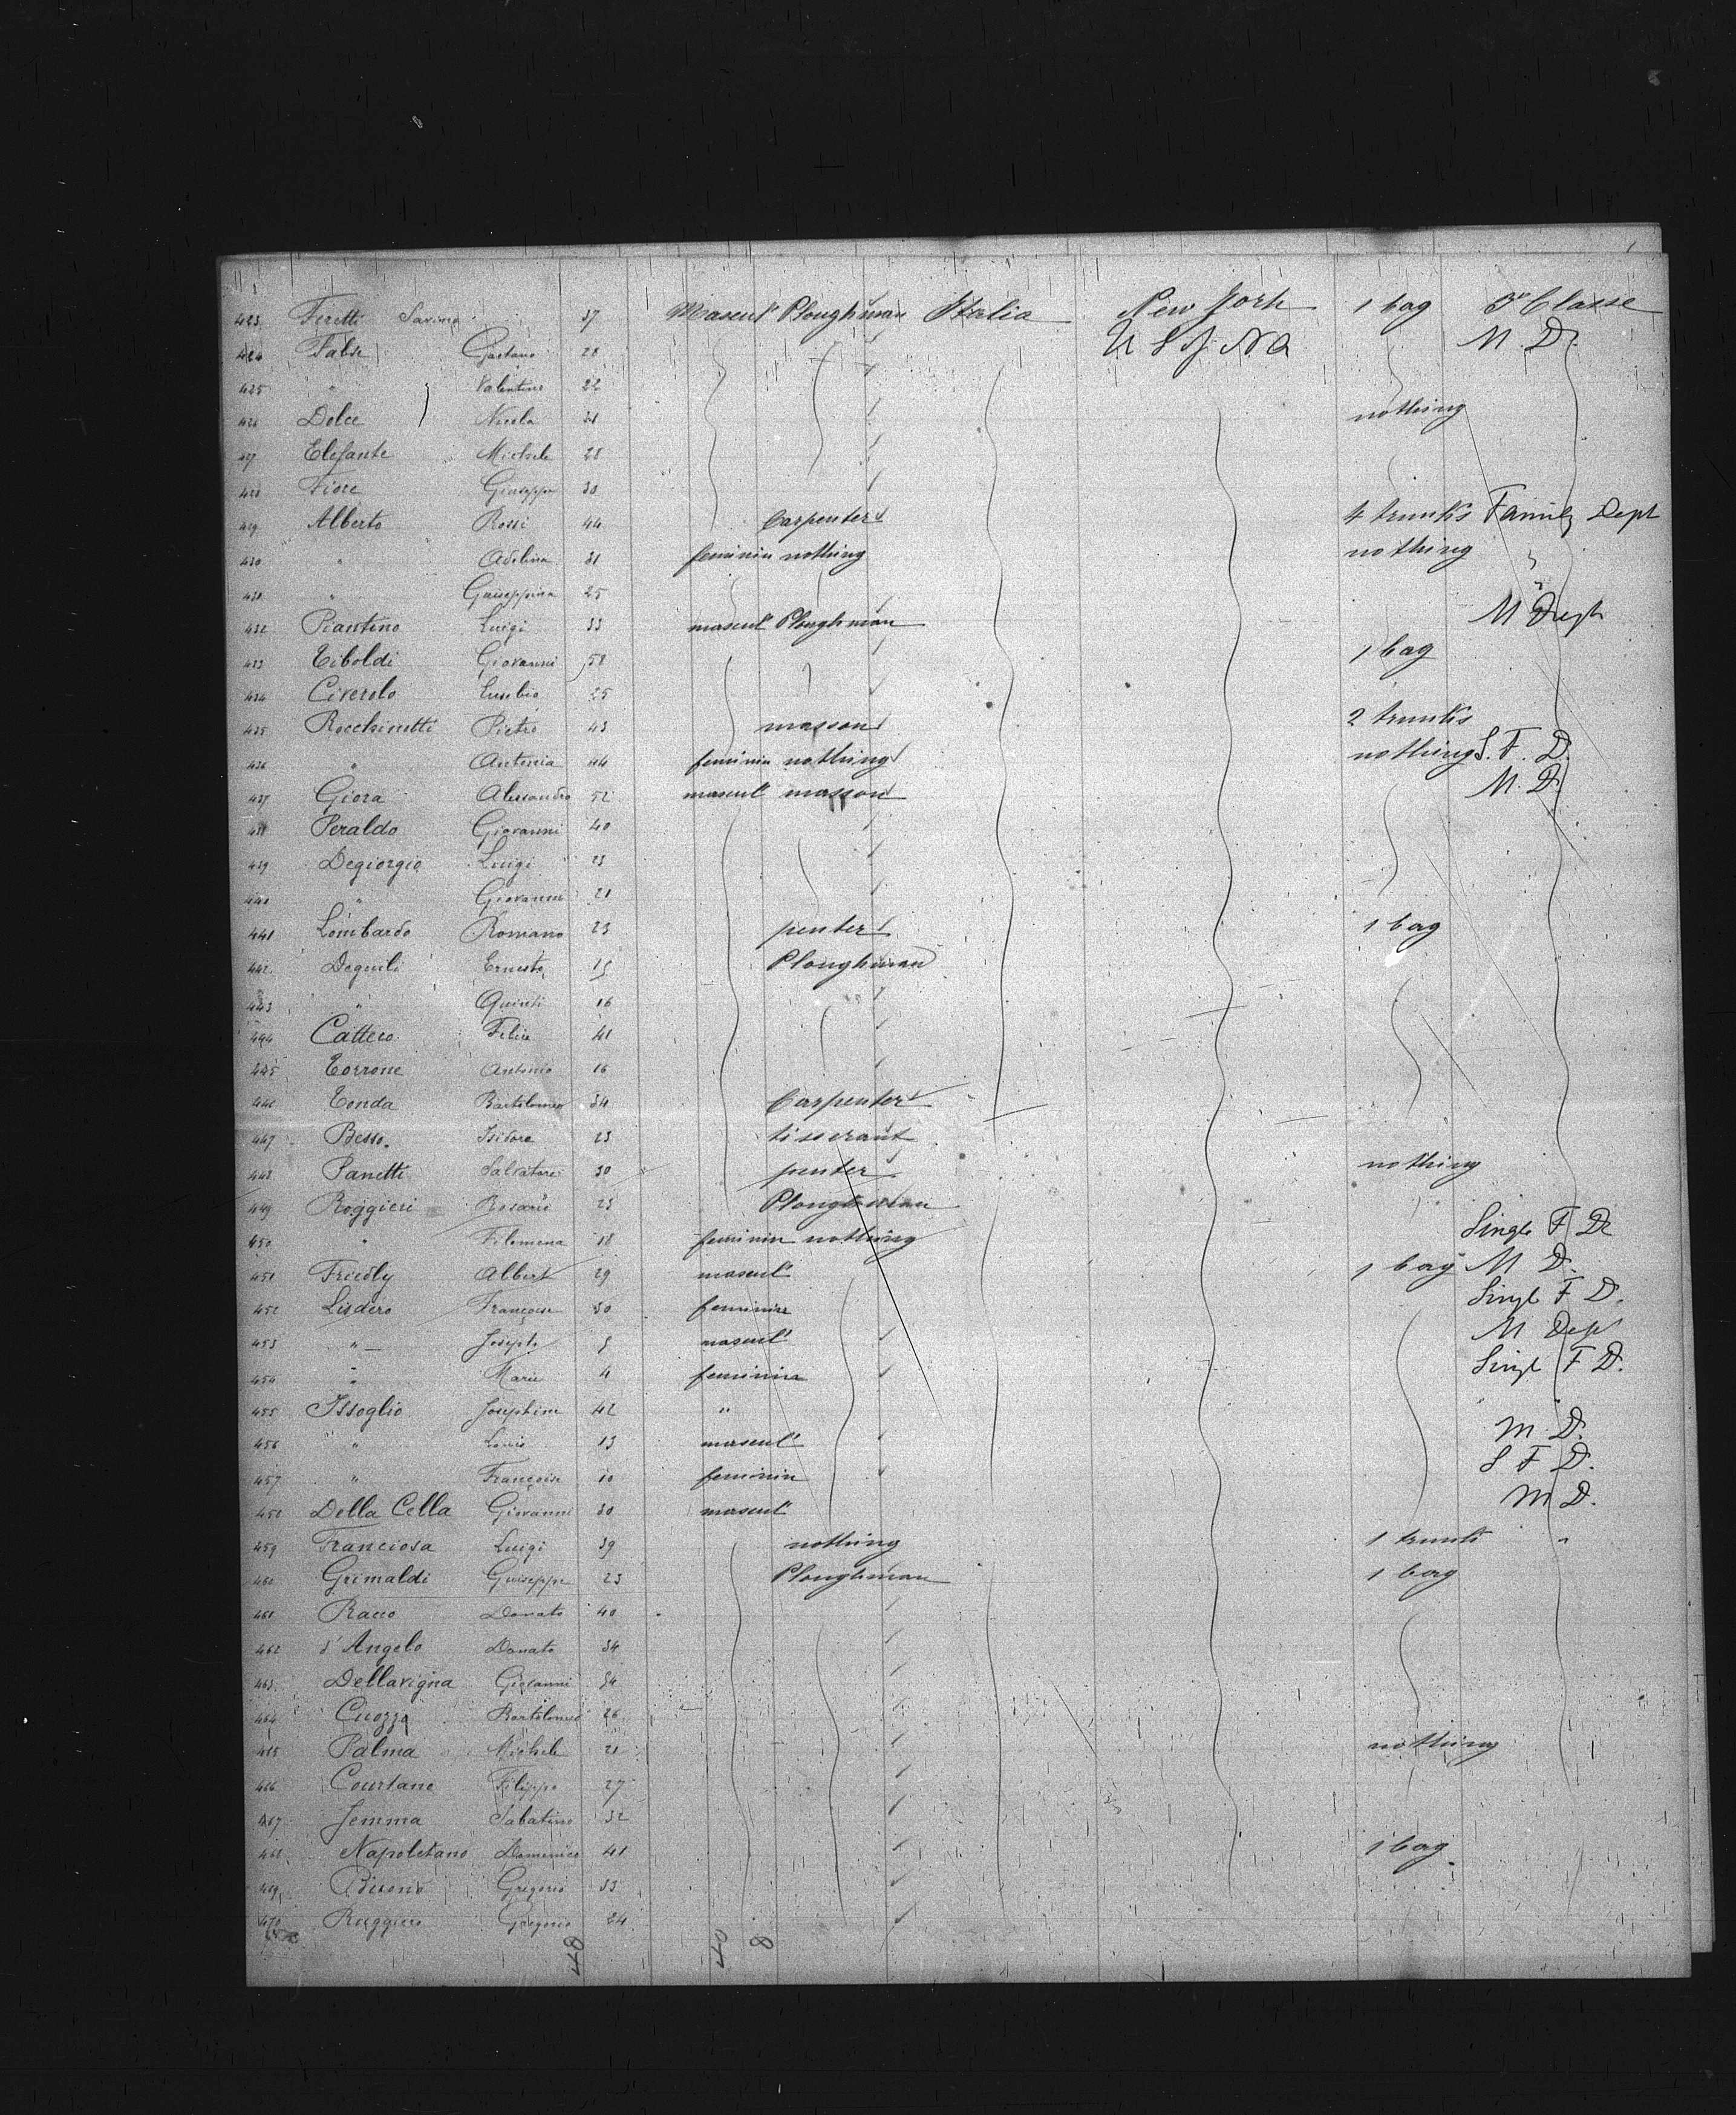 423 Feretti Savino 37 Mascul Ploughman Italia New York 1 bag 3e Classe
424 Gaetano 28 U S of Na M. D.
425 " Valentino 22
426 Dolce Nicola 31 nothing
427 Elefante Michele 28
428 Fiore Giuseppe 30
429 Alberto Rossi 44 Carpenter 4 trunks Family Dept
430 " Adelina 31 feminin nothing nothing "
431 " Guiseppina 25 "
432 Piantino Luigi 33 mascul Ploughman M Dept
433 Tiboldi Giovanni 58 1 bag
434 Civerolo Eusebio 25
435 Rocchinotti Pietro 43 masson 2 trunks
436 " Antonia 44 feminin nothing nothing S. F. D.
437 Giora Alessandro 52 mascul masson M. D.
438 Peraldo Giovanni 40
439 Degiorgio Luigi 23
440 " Giovanni 21
441 Lombardo Romano 23 penter 1 bag
442 Ernesto Ploughman
443 " Quinti 16
444 Felice 41
445 Torrone Antonio 16
446 Tonda Bartolomeo 34 Carpenter
447 Besso Isidore 23 tisserant
448 Panetti Salvatore 30 penter nothing
449 Roggieri Rosario 23 Ploughman
450 " Filomena 18 feminin nothing Single F D
451 Friedly Albert 29 mascul 1 bag M D.
452 Lisdero Françoise 30 feminin Singl F D.
453 " Joseph 5 mascul M Dep
454 " Marie 4 feminin Singl F D.
455 Issoglio Josephine 42 " " "
456 " Louis 13 mascul M. D.
457 " Françoise 10 feminin S F D.
458 Della Cella Giovanni 30 mascul M D.
459 Franciosa Luigi 39 nothing 1 trunk "
460 Grimaldi Guiseppe 23 Ploughman 1 bag
461 Racco Donato 40
462 d'Angelo Donato 34
463 Dellavigna Giovanni 54
464 Cuozzo Bartolomeo 26
465 Palma Michele 21 nothing
466 Courtane Filippo 27
467 Jemma Sabatino 32
468 Napoletano Domenico 41 1 bag
469 Gregorio 33
470 Ruggiero Gregorio 24